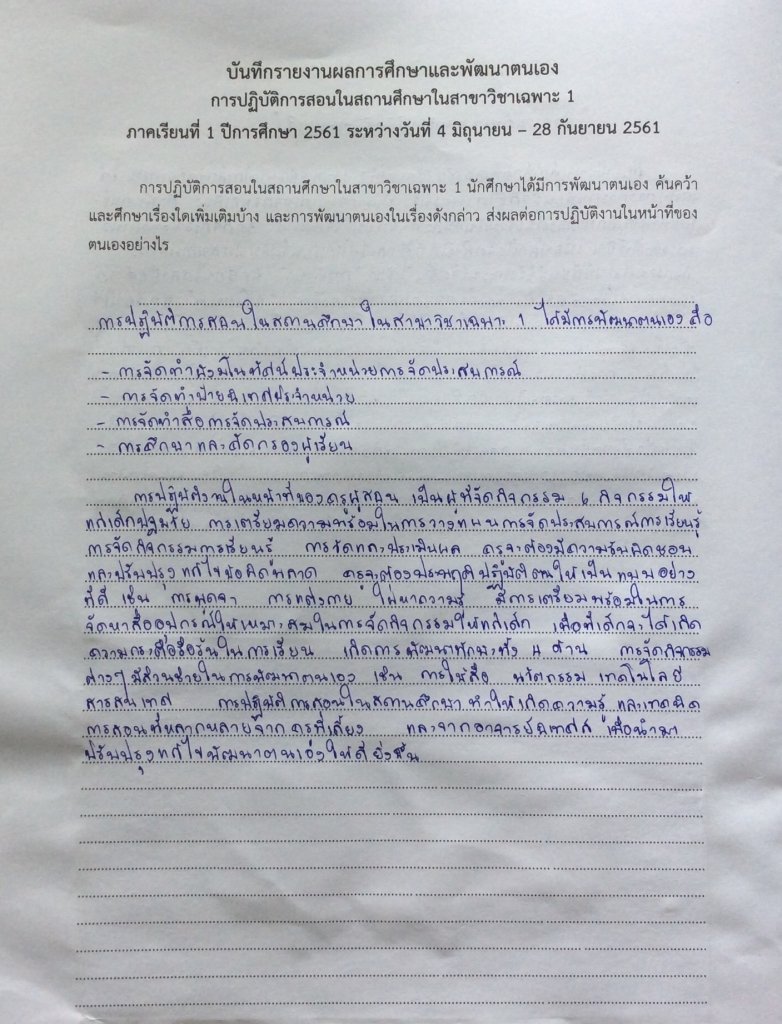 บันทึกรายงานผลการศึกษาและพัฒนาตนเอง
การปฏิบัติการสอนในสถานศึกษาในสาขาวิชาเฉพาะ 1
ภาคเรียนที่ 1 ปีการศึกษา 2561 ระหว่างวันที่ 4 มิถุนายน – 28 กันยายน 2561
การปฏิบัติการสอนในสถานศึกษาในสาขาวิชาเฉพาะ 1 นักศึกษาได้มีการพัฒนาตนเอง ค้นคว้า
และศึกษาเรื่องใดเพิ่มเติมบ้าง และการพัฒนาตนเองในเรื่องดังกล่าว ส่งผลต่อการปฏิบัติงานในหน้าที่ของ
ตนเองอย่างไร
การปฏิบัติการสอนในสถานศึกษาในสาขาวิชาเฉพาะ 1 ได้มีการพัฒนาตนเอง คือ
- การจัดทำผังมโนทัศน์ประจำหน่วยการจัดประสบการณ์
- การจัดทำป้ายนิเทศประจำหน่วย
- การจัดทำสื่อการจัดประสบการณ์
- การศึกษาและคัดกรองผู้เรียน
การปฏิบัติงานในหน้าที่ของครูผู้สอน เป็นผู้ที่จัดกิจกรรม 6 กิจกรรมให้
แก่เด็กปฐมวัย การเตรียมความพร้อมในการวางแผนการจัดประสบการณ์การเรียนรู้
การจัดกิจกรรมการเรียนรู้ การวัดและประเมินผล ครูจะต้องมีความรับผิดชอบ
และปรับปรุงแก้ไขข้อผิดพลาด ครูจะต้องประพฤติปฏิบัติตนให้เป็นแบบอย่าง
ที่ดี เช่น การพูดจา การแต่งกาย ใฝ่หาความรู้ มีการเตรียมพร้อมในการ
จัดหาสื่ออุปกรณ์ให้เหมาะสมในการจัดกิจกรรมให้แก่เด็ก เพื่อที่เด็กจะได้เกิด
ความกระตือรือร้นในการเรียน เกิดการพัฒนาทักษะทั้ง 4 ด้าน การจัดกิจกรรม
ต่างๆ มีส่วนช่วยในการพัฒนาตนเอง เช่น การใช้สื่อ นวัตกรรม เทคโนโลยี
สารสนเทศ การปฏิบัติการสอนในสถานศึกษา ทำให้เกิดความรู้ และเทคนิค
การสอนที่หลากหลายจากครูพี่เลี้ยง และจากอาจารย์นิเทศก์ เพื่อนำมา
ปรับปรุงแก้ไขพัฒนาตนเองให้ดียิ่งขึ้น